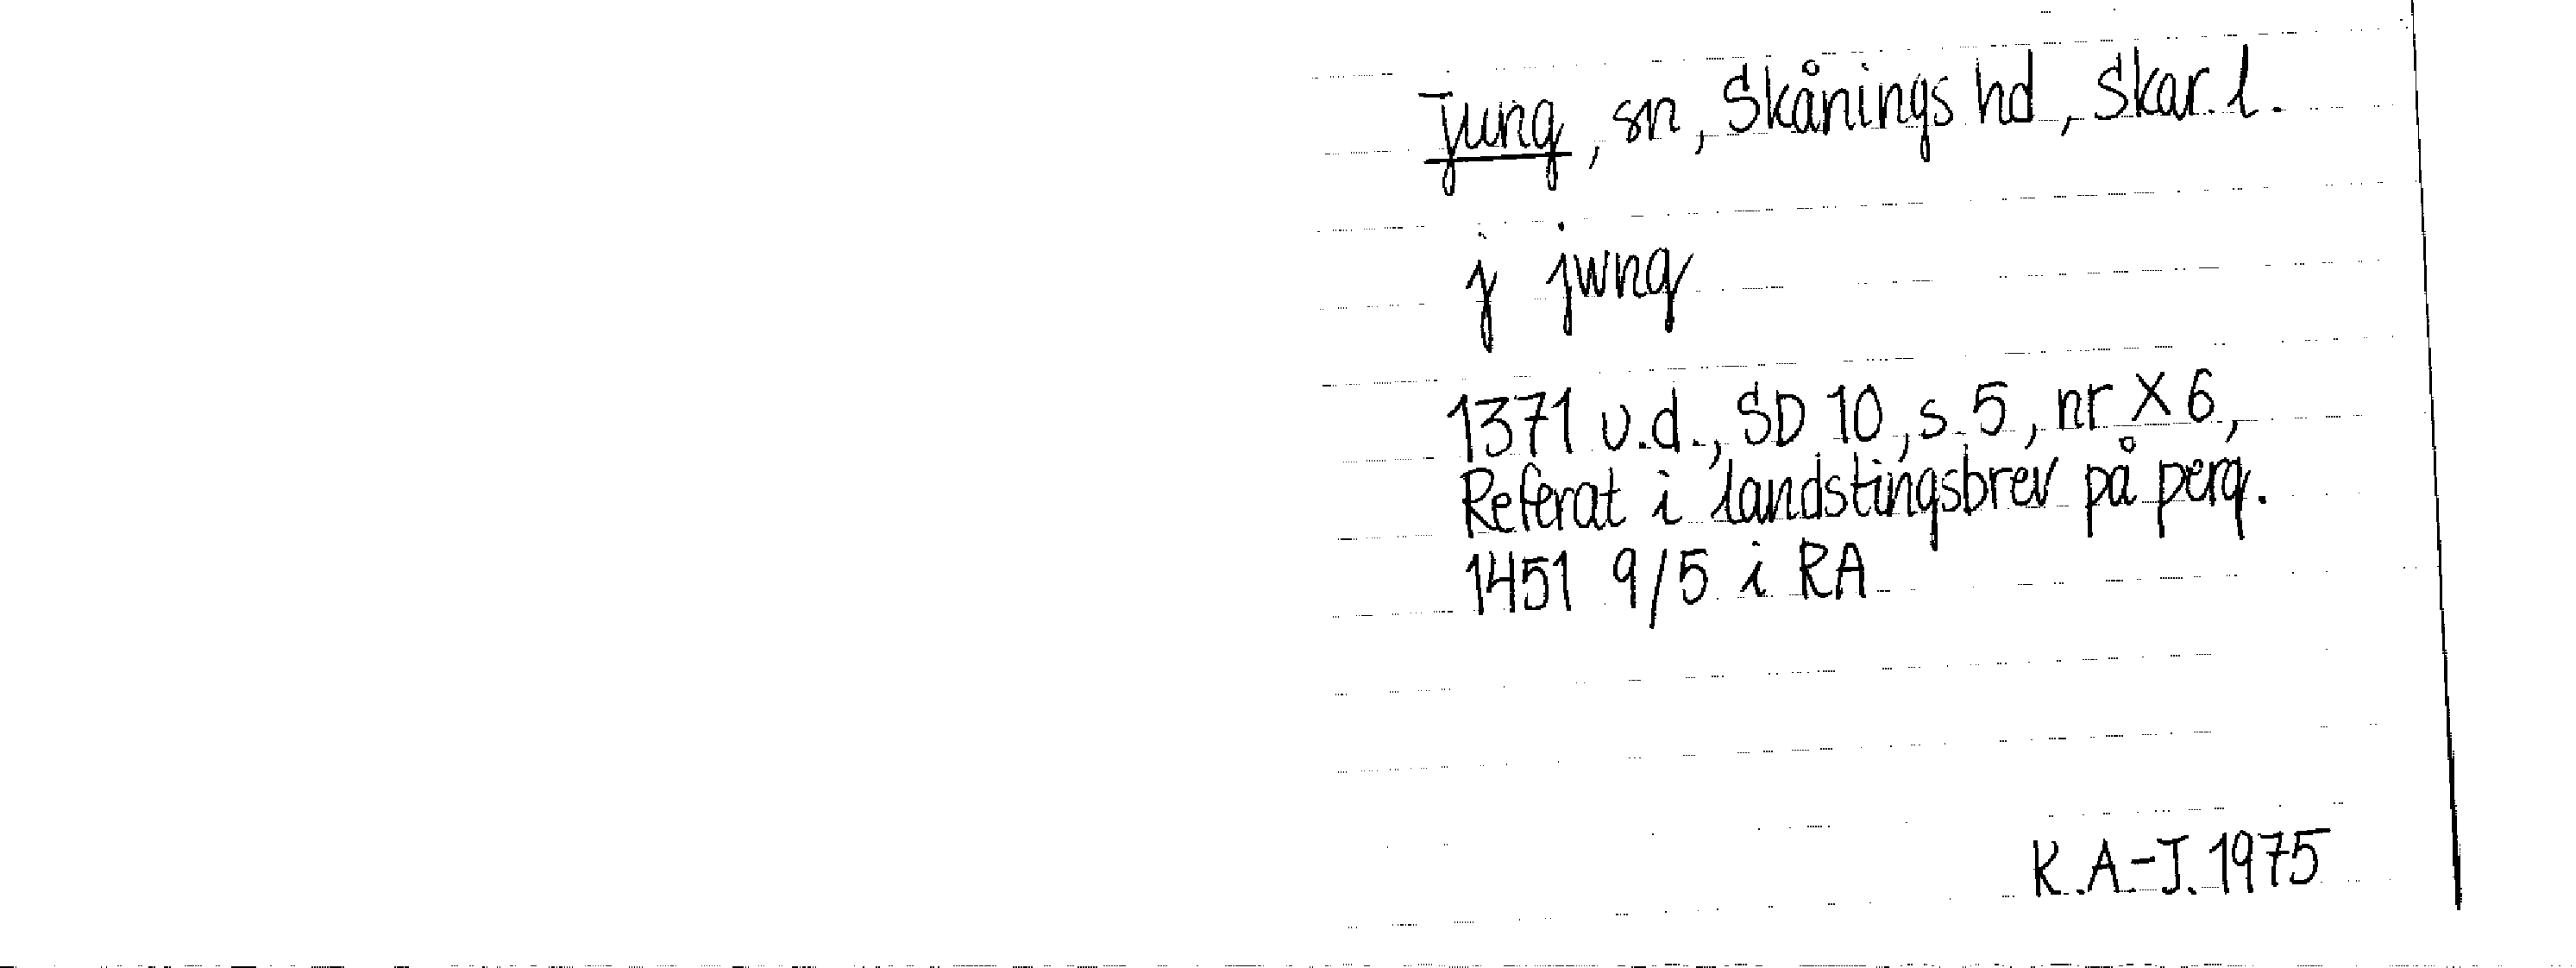 Jung, sn, Skånings hd, Skar. l.
j jwng
1371 u.d., SD 10, s. 5, nr X 6,
Referat i landstingsbrev på perg.
1451 9/5 i RA
K.A-J. 1975